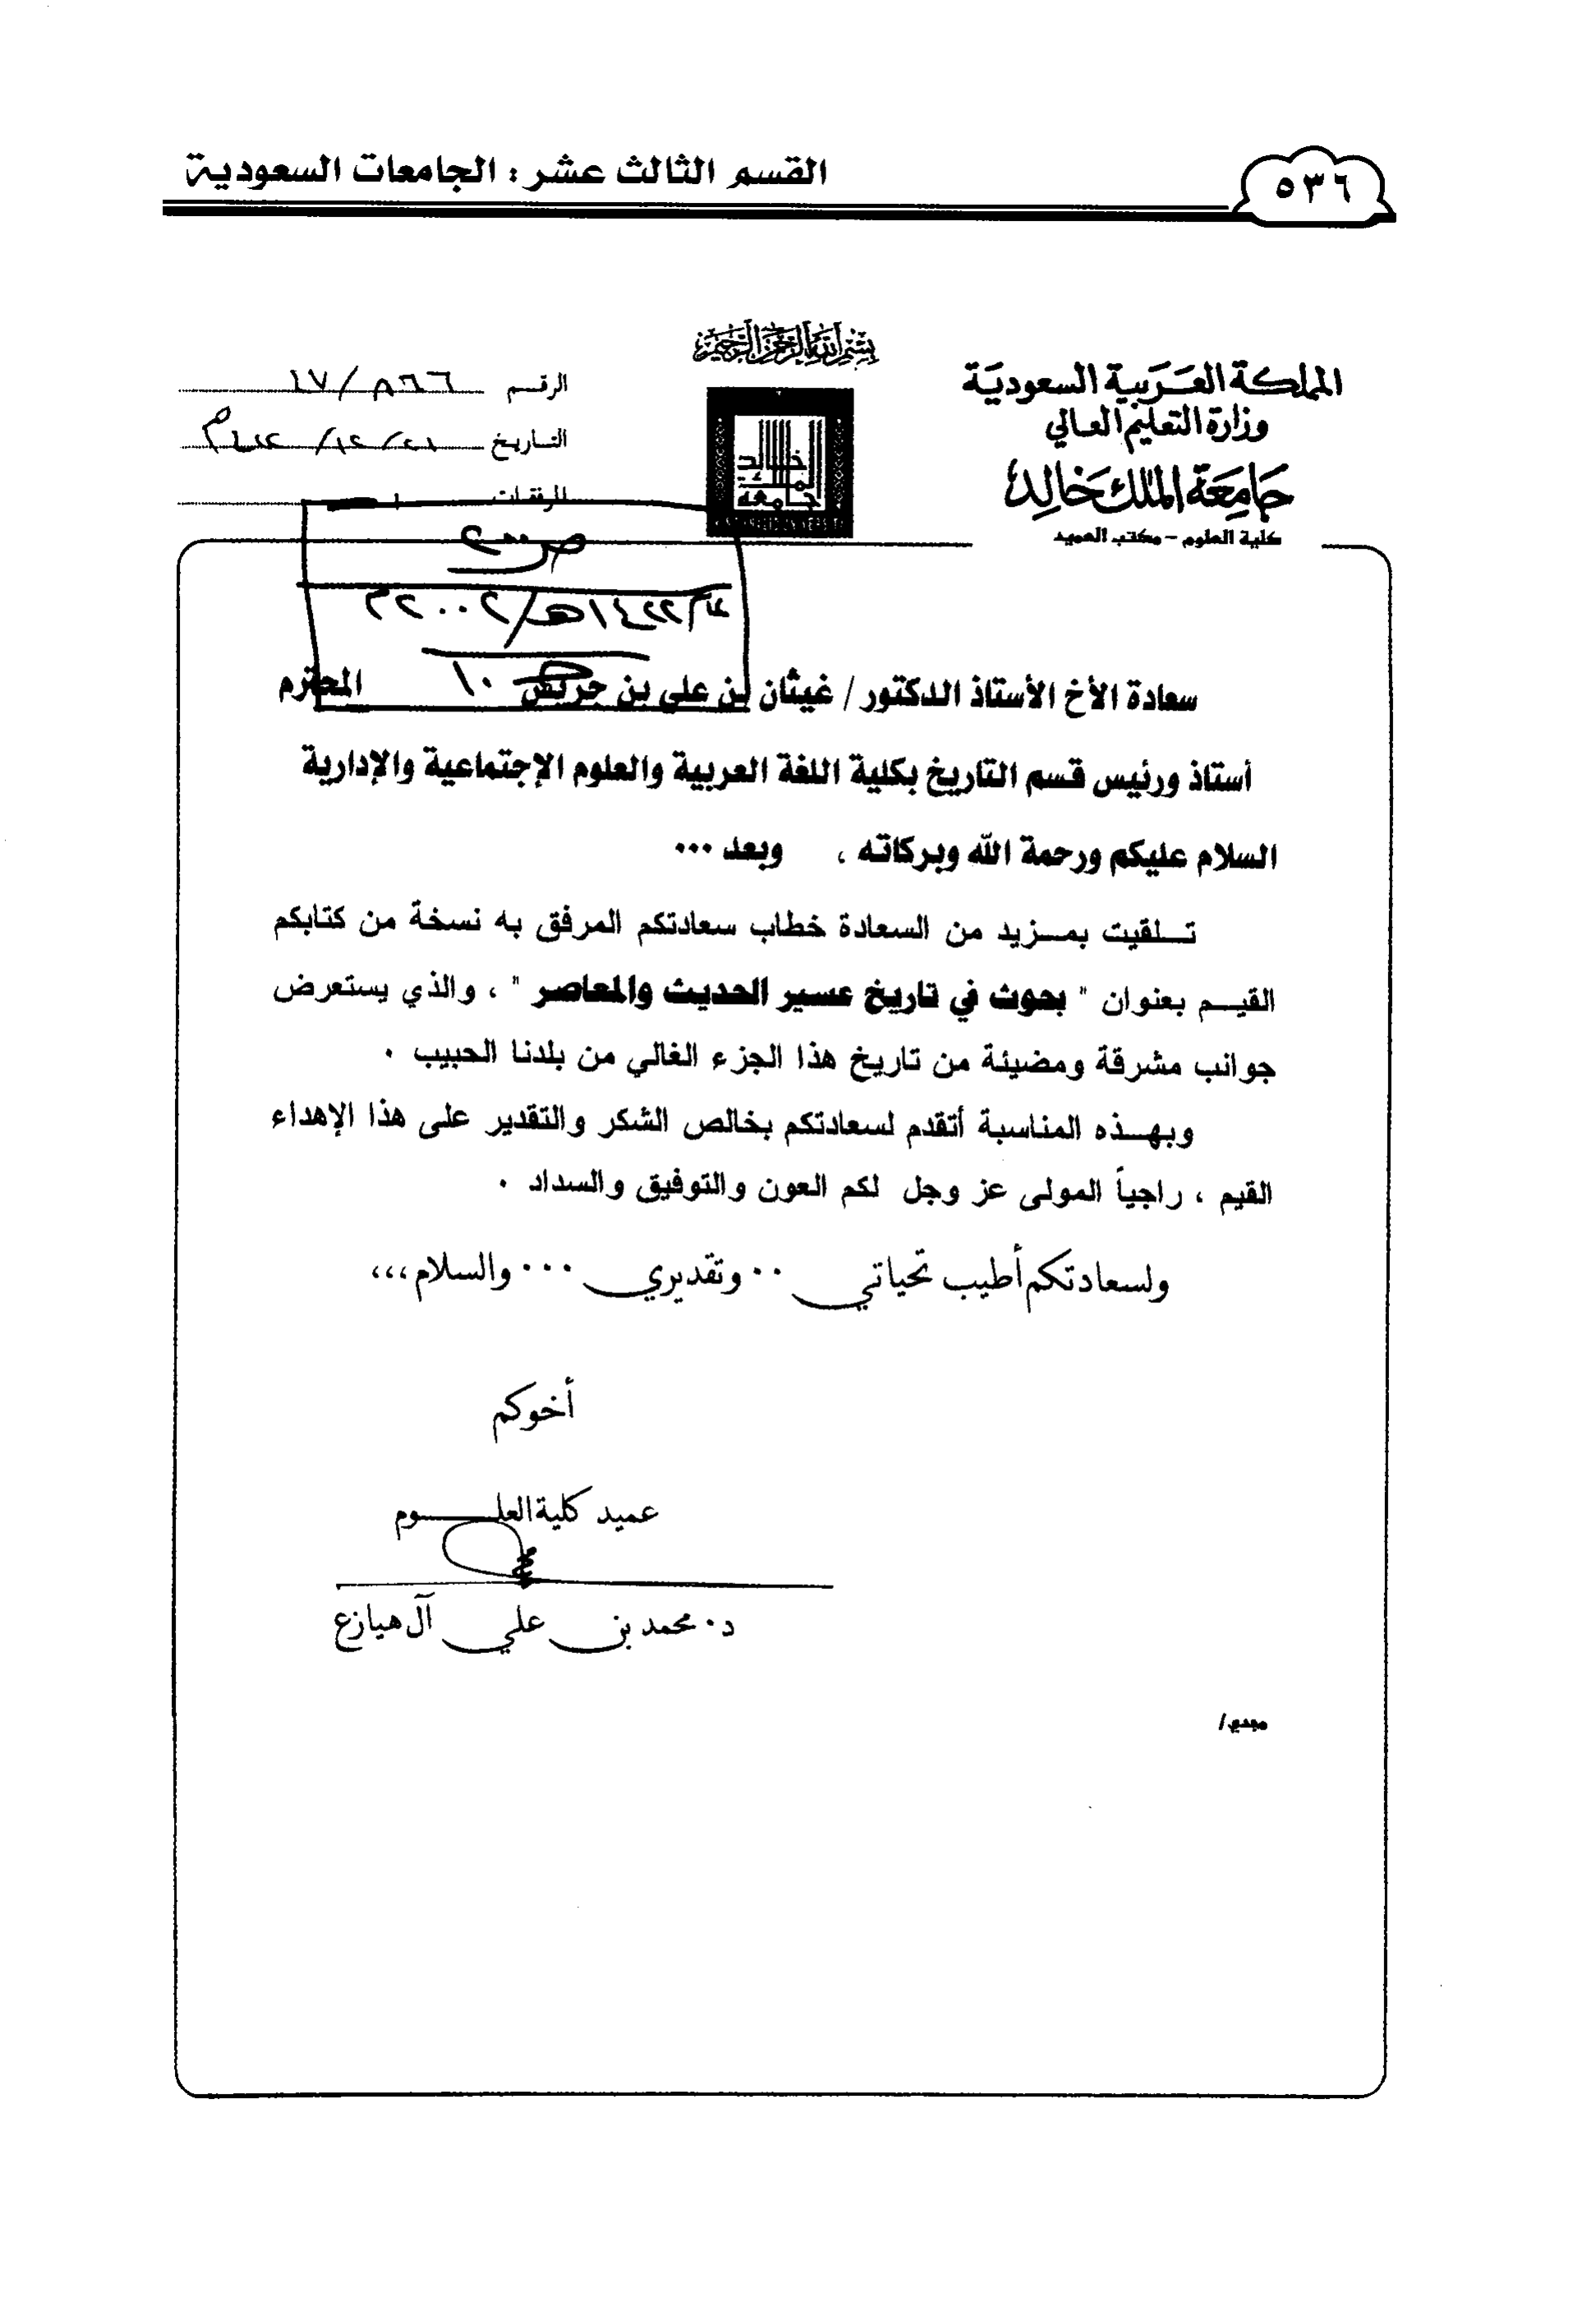 القسم الثالث عشر : الجامعات السعودية
٥٣٦
بسم الله الرحمن الرحيم
المملكة العربية السعودية
وزارة التعليم العالي
جامعة الملك خالد
كلية العلوم - مكتب العميد
خالد
الملك
جامعة
الرقم
التاريخ
المرفقات
عام ١٤٢٢هـ/٢٠٠٢م
١٠
سعادة الأخ الأستاذ الدكتور / غيثان بن علي بن جريس المحترم
أستاذ ورئيس قسم التاريخ بكلية اللغة العربية والعلوم الإجتماعية والإدارية
السلام عليكم ورحمة الله وبركاته ، وبعد ...
تــلقيت بمــزيد من السعادة خطاب سعادتكم المرفق به نسخة من كتابكم
القيــم بعنوان " بحوث في تاريخ عسير الحديث والمعاصر " ، والذي يستعرض
جوانب مشرقة ومضيئة من تاريخ هذا الجزء الغالي من بلدنا الحبيب .
وبهــذه المناسبة أتقدم لسعادتكم بخالص الشكر والتقدير على هذا الإهداء
القيم ، راجياً المولى عز وجل لكم العون والتوفيق والسداد .
ولسعادتكم أطيب تحياتي .. وتقديري ... والسلام ،،،
أخوكم
عميد كلية العلــــوم
د. محمد بن علي آل هيازع
مجدي/